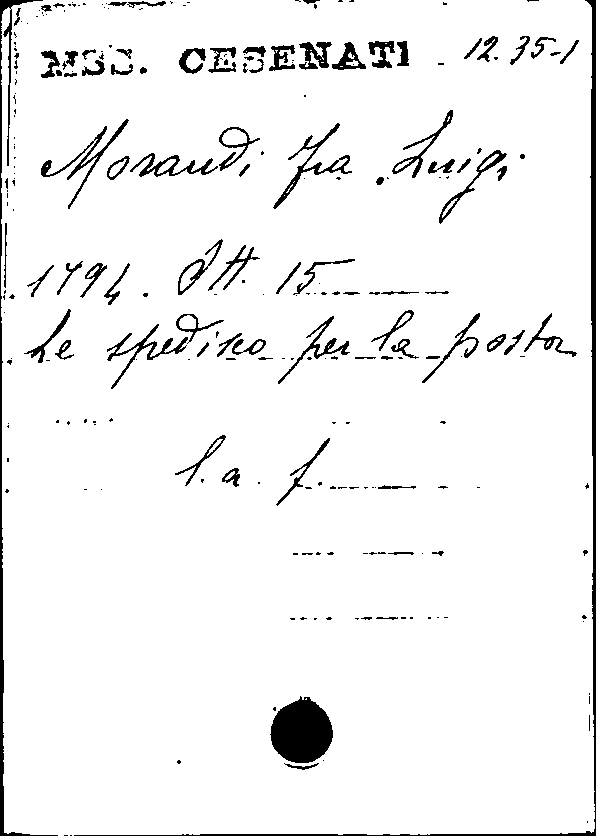 MSS. CESENATI 12.35-1
Morandi fra Luigi
1794. Ott. 15
Le spedisco per la posta
l. a. f.